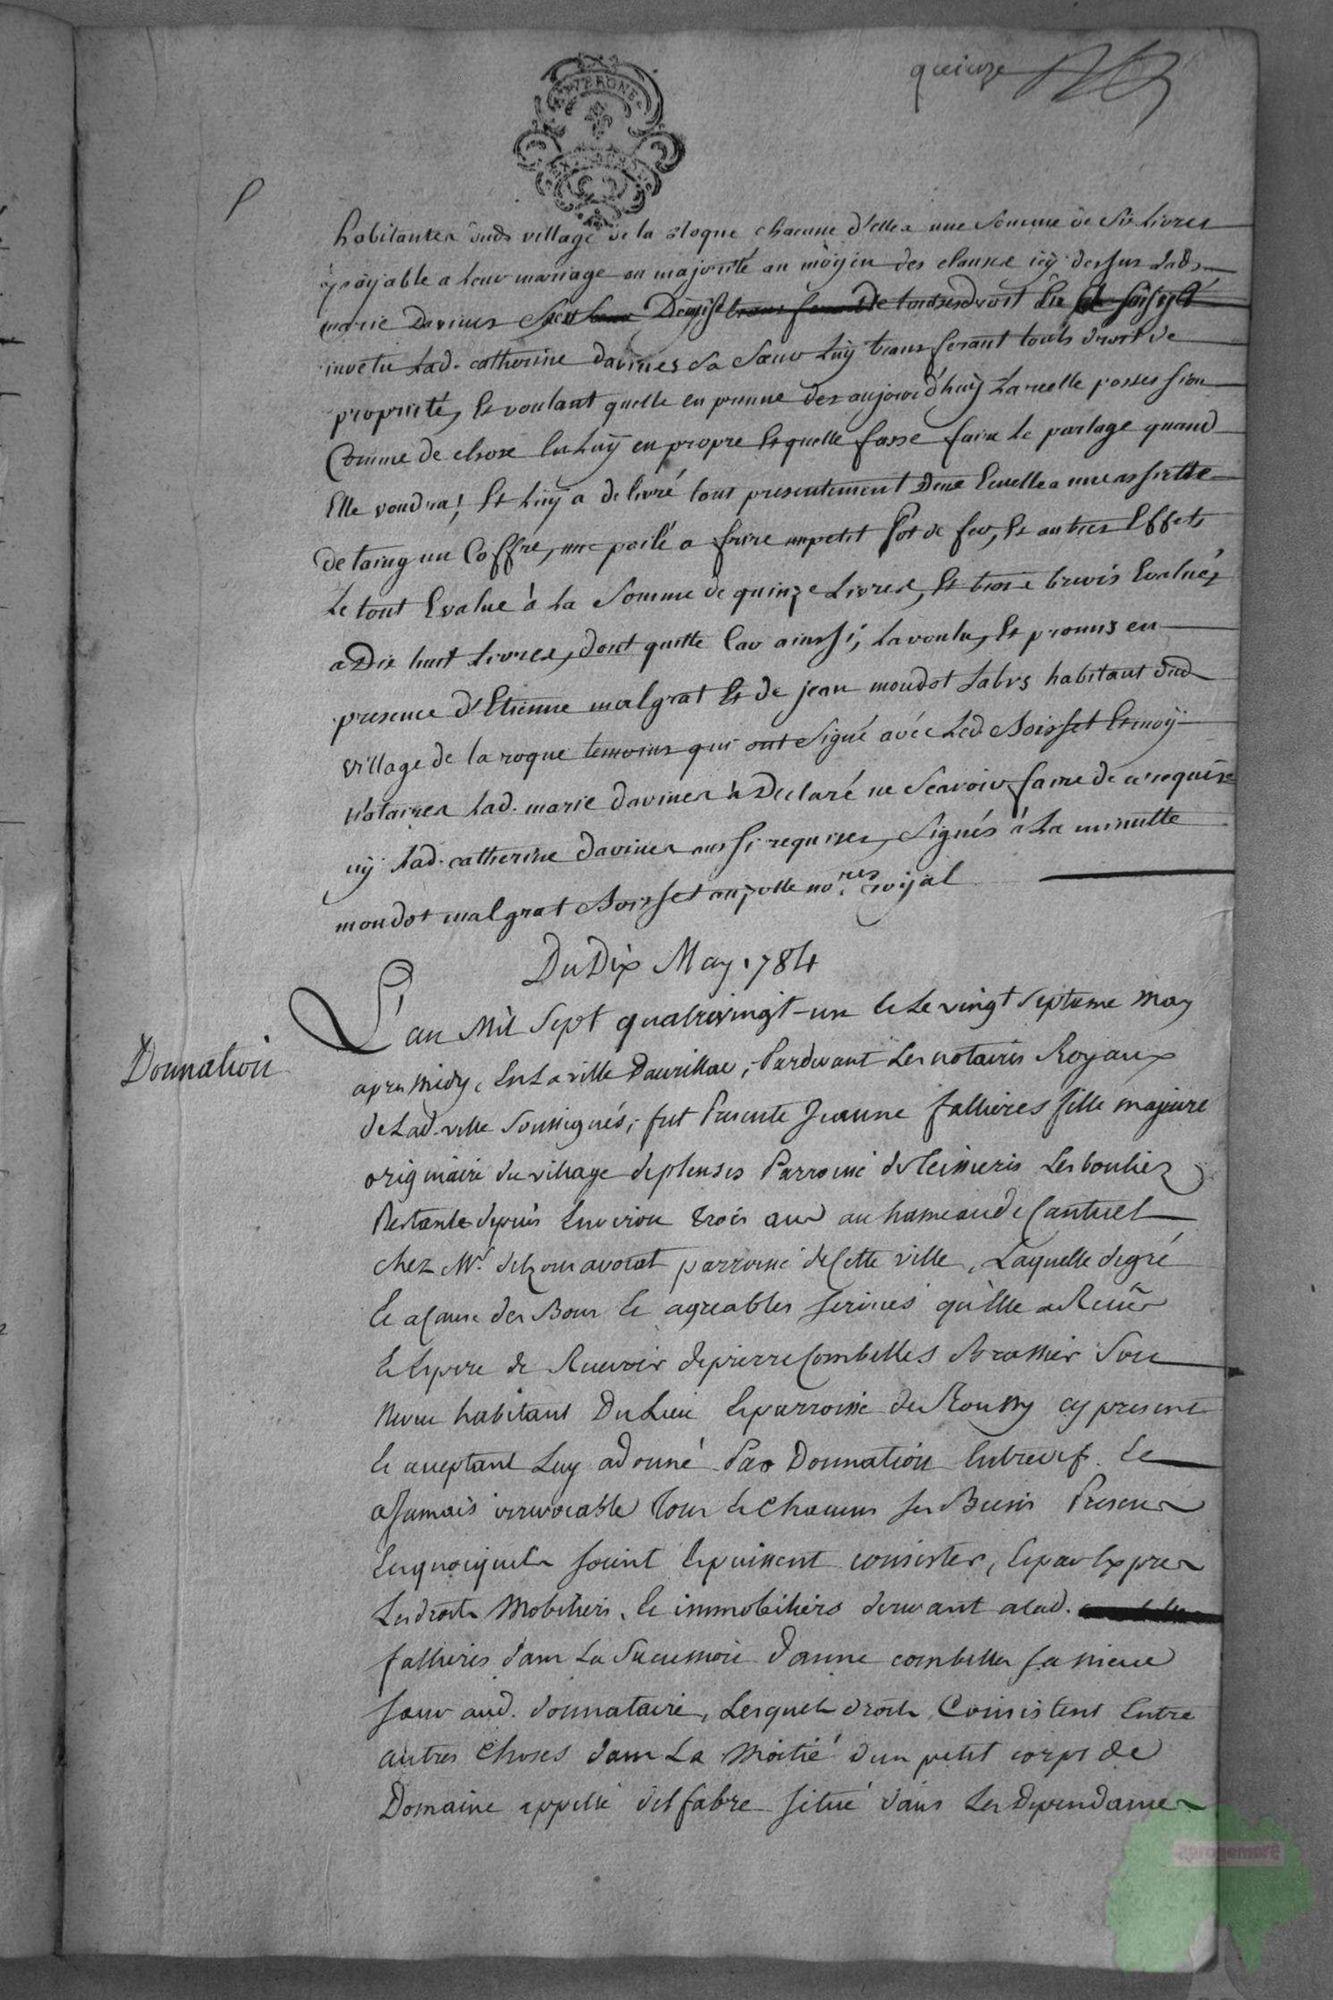 quinze
AUVERGNE
habitantes dud. village de la Roque chacune d'elles une somme de six livres
payable a leur mariage ou majorité au moyen des clauses icy dessus lad.
marie Davines Demise de tout droit
invetu Lad. catherine davines sa sœur Luy transferant touts droit de
proprieté, Et voulant quelle en prenne des aujourd'huy La reelle possession
Comme de chose Luy en propre Et quelle fasse faire Le partage quand
Elle voudra! Et Luy a delivré tout presentement Deux Ecuelles une assiette
de taing un Coffre, une poile a frire un petit Pot de fer, Et autres Effets
Le tout Evalue à La Somme de quinze Livres, Et trois brevis Evalués
a Dix huit Livres, dont quitte Car ainssi, La voulu, Et promis en
presence d'Etienne malgrat Et de jean moudot Labrs habitant dud.
village de la roque temoins qui ont signé avéc Led. Boisset Et moÿ
Notaires Lad. marie davines à Declaré ne scavoir faire de ce requise
nÿ Lad. catherine davines aussi requises, Signés à La minutte
moudot malgrat Boisset no.res roÿal
Du Dix May 1784
Donnation
L'an Mil Sept quatrevingt-un & Le vingt septieme May
apres Midy, En La ville Daurillac, Pardevant Les notaires Royaux
de Lad. ville Soussignés, fut Presente Jeanne fallieres fille majeure
originaire du village deplenses Parroisse de Teissieres Les bouliez
Restante depuis Environ trois ans au hameau de Cantuel
chez Mr. avocat parroisse de Cette ville, Laquelle de gré
& a Cause des Bons & agreables services qu'Elle a Recus
& Espere de Recevoir de pierre Combelles Brassier Son
Neveu habitant Du Lieu & parroisse de Roussy cy present
& acceptant Luy a donné Par Donnation Entrevifs &
a Jamais irrevocable Tous & Chacuns ses Biens Presens
En quoi quils soient & puissent consister, & par Expres
Les droits Mobiliers & immobiliers devant a Lad.
fallieres dans La Succession d'anne combelles sa niece
sœur aud. donnataire, Lesquels droits Consistent Entre
autres Choses dans La Moitié d'un petit corps de
Domaine appellé del fabre situé dans Les Dependances